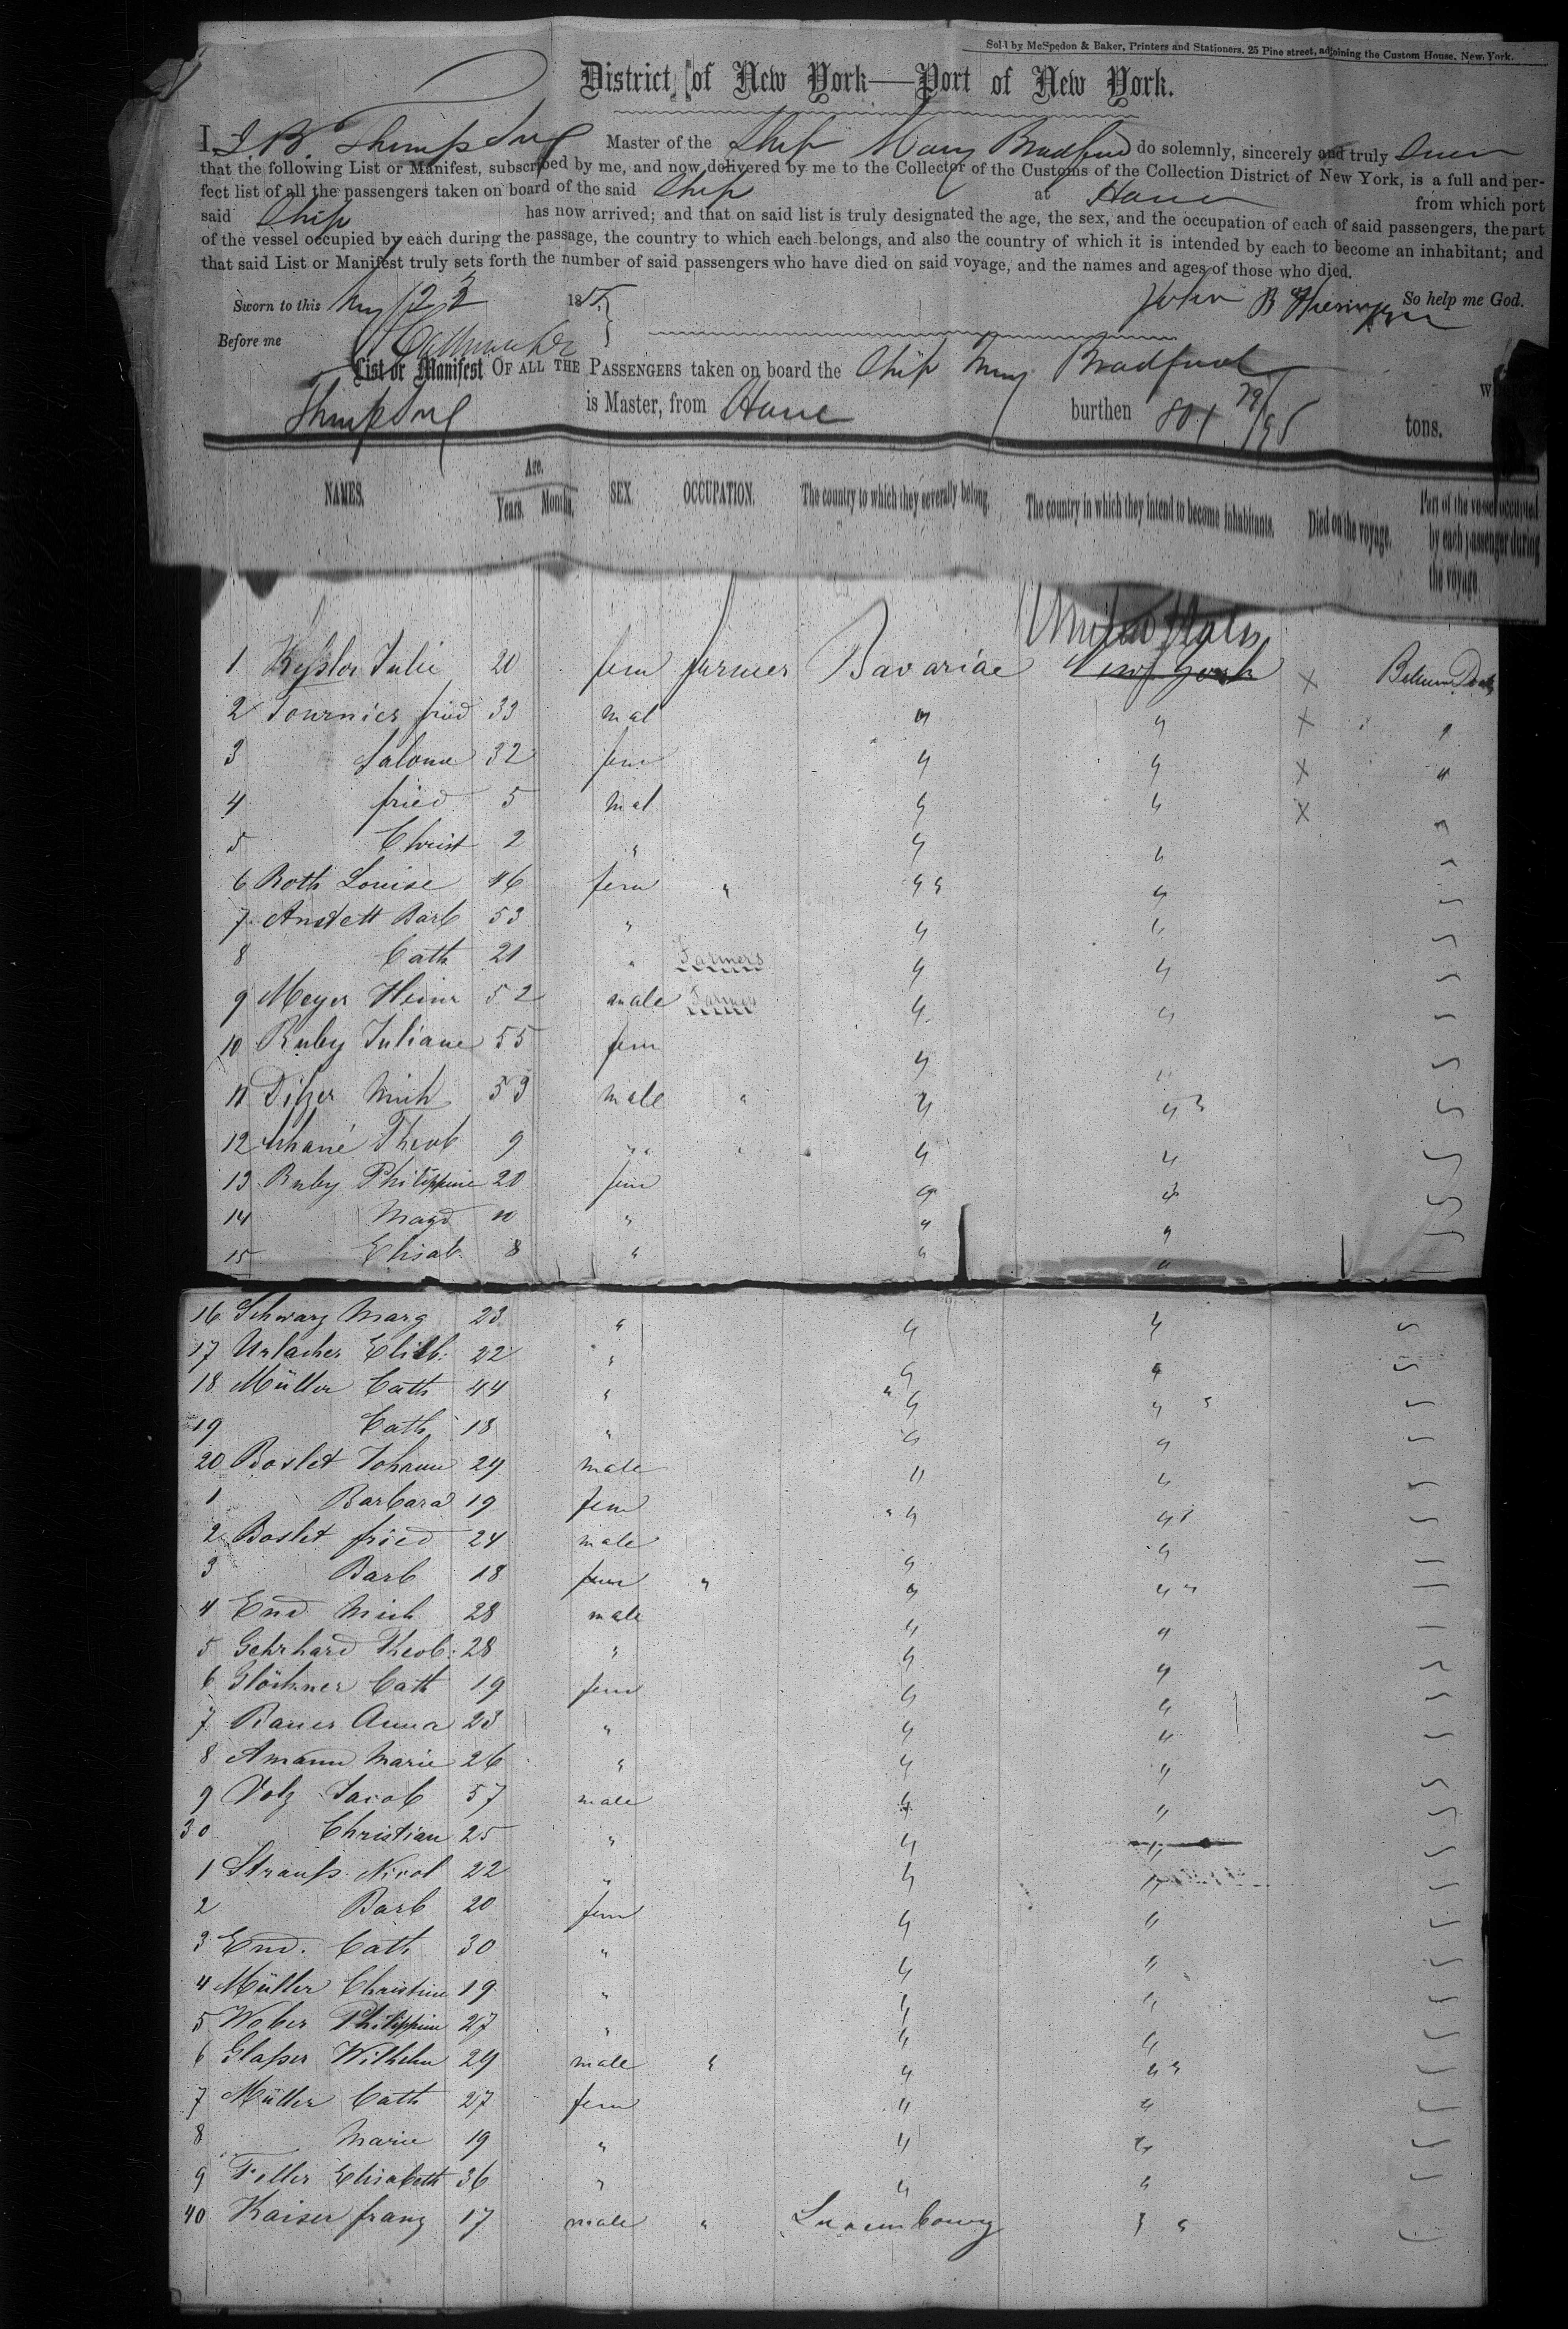 Sold by McSpedon & Baker, Printers and Stationers. 25 Pine street, adjoining the Custom House. New York.
District of New York—Port of New York.
I, Master of the Ship Mary Bradford do solemnly, sincerely and truly
that the following List or Manifest, subscribed by me, and now delivered by me to the Collector of the Customs of the Collection District of New York, is a full and per-
fect list of all the passengers taken on board of the said Ship at from which port
said Ship has now arrived; and that on said list is truly designated the age, the sex, and the occupation of each of said passengers, the part
of the vessel occupied by each during the passage, the country to which each belongs, and also the country of which it is intended by each to become an inhabitant; and
that said List or Manifest truly sets forth the number of said passengers who have died on said voyage, and the names and ages of those who died.
Sworn to this 22 18 John B So help me God.
Before me
List or Manifest OF ALL THE PASSENGERS taken on board the Ship Mary Bradford
is Master, from burthen 801 tons.
NAMES. Age. Years. Months. SEX. OCCUPATION. The country to which they severally belong. The country in which they intend to become inhabitants. Died on the voyage. Part of the vessel occupied by each passenger during the voyage
United States
1 Keßler Julie 20 fem farmer Bavariae New York
2 Tournier fried 33 mal "
3 Salome 32 fem " "
4 fried 5 mal " "
5 Christ 2 " " "
6 Roth Louise 16 fem " " "
7 Anstett Barb 53 " " "
8 Cath 21 " Farmers " "
9 Meyer Heinr 52 male Farmer " "
10 Ruby Juliane 55 fem " "
11 Mich 53 male " " "
12 Theob 9 " " "
13 Ruby Philippine 20 fem " "
14 Magd 10 " " "
15 Elisab 8 " " "
16 Schwarz Marg 23 " " "
17 Urlacher Elisb. 22 " " "
18 Müller Cath 44 " " "
19 Cath 18 " " "
20 Boslet Johann 29 male " "
1 Barbara 19 fem " "
2 Boslet fried 24 male " "
3 Barb 18 fem " " "
4 End Mich 28 male " "
5 Gehrhard Theob. 28 " " "
6 Glöckner Cath 19 fem " "
7 Bauer Anna 23 " " "
8 Amann Marie 26 " " "
9 Volz Jacob 57 male " "
30 Christian 25 " " "
1 Strauß Nicol 22 " " "
2 Barb 20 fem " "
3 End. Cath 30 " " "
4 Müller Christine 19 " " "
5 Weber Philippine 27 " " "
6 Glaßer Wilhelm 29 male " " "
7 Müller Cath 27 fem " "
8 Marie 19 " " "
9 Feller Elisabeth 36 " " "
40 Kaiser franz 17 male " Luxembourg "